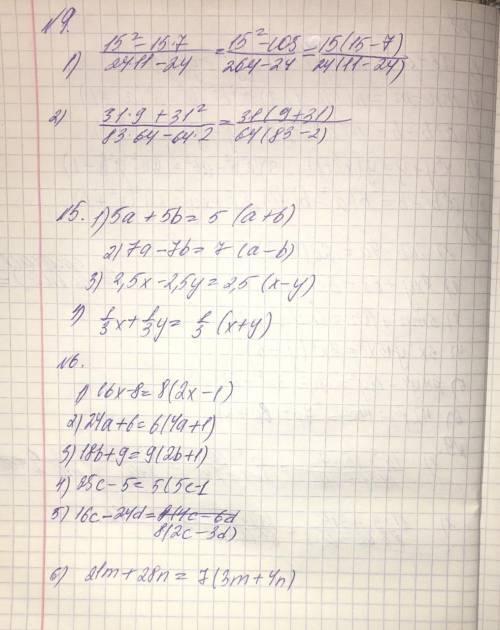 №9.
1) (15² - 15·7)/(24·11 - 24) = (15² - 105)/(264 - 24) = 15(15 - 7)/24(11 - 24)
2) (31·9 + 31²)/(83·64 - 64·2) = 31(9 + 31)/64(83 - 2)
№5. 1) 5a + 5b = 5 (a + b)
2) 7a - 7b = 7 (a - b)
3) 2,5x - 2,5y = 2,5 (x - y)
4) 1/3 x + 1/3 y = 1/3 (x + y)
№6.
1) 16x - 8 = 8(2x - 1)
2) 24a + 6 = 6(4a + 1)
3) 18b + 9 = 9(2b + 1)
4) 25c - 5 = 5(5c - 1
5) 16c - 24d =
8(2c - 3d)
6) 21m + 28n = 7(3m + 4n)